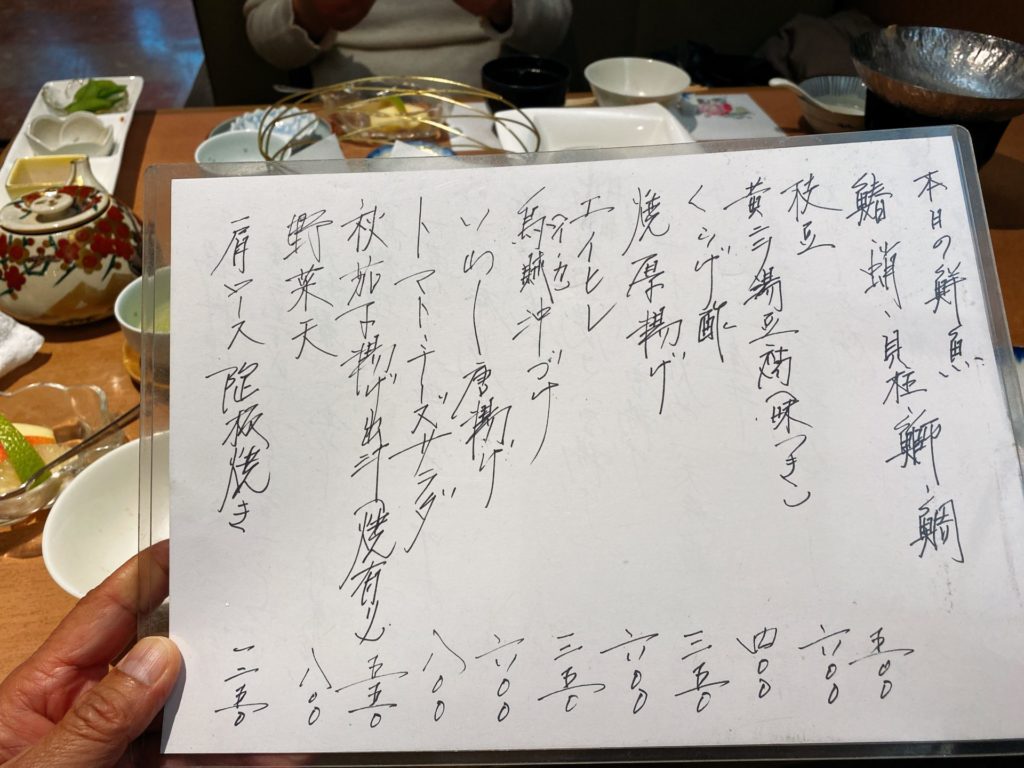 本日の鮮魚
鰆、蛸、貝柱、鰤、鯛
枝豆 五〇〇
黄ニラ湯豆腐(味つき) 六〇〇
くらげ酢 四〇〇
焼厚揚げ 三五〇
エイヒレ 六〇〇
烏賊沖づけ 三五〇
いわし唐揚げ 六〇〇
トマト・チーズサラダ 八〇〇
秋茄子揚げ出汁(焼有り) 五五〇
野菜天 八〇〇
肩ロース陶板焼き 一二五〇